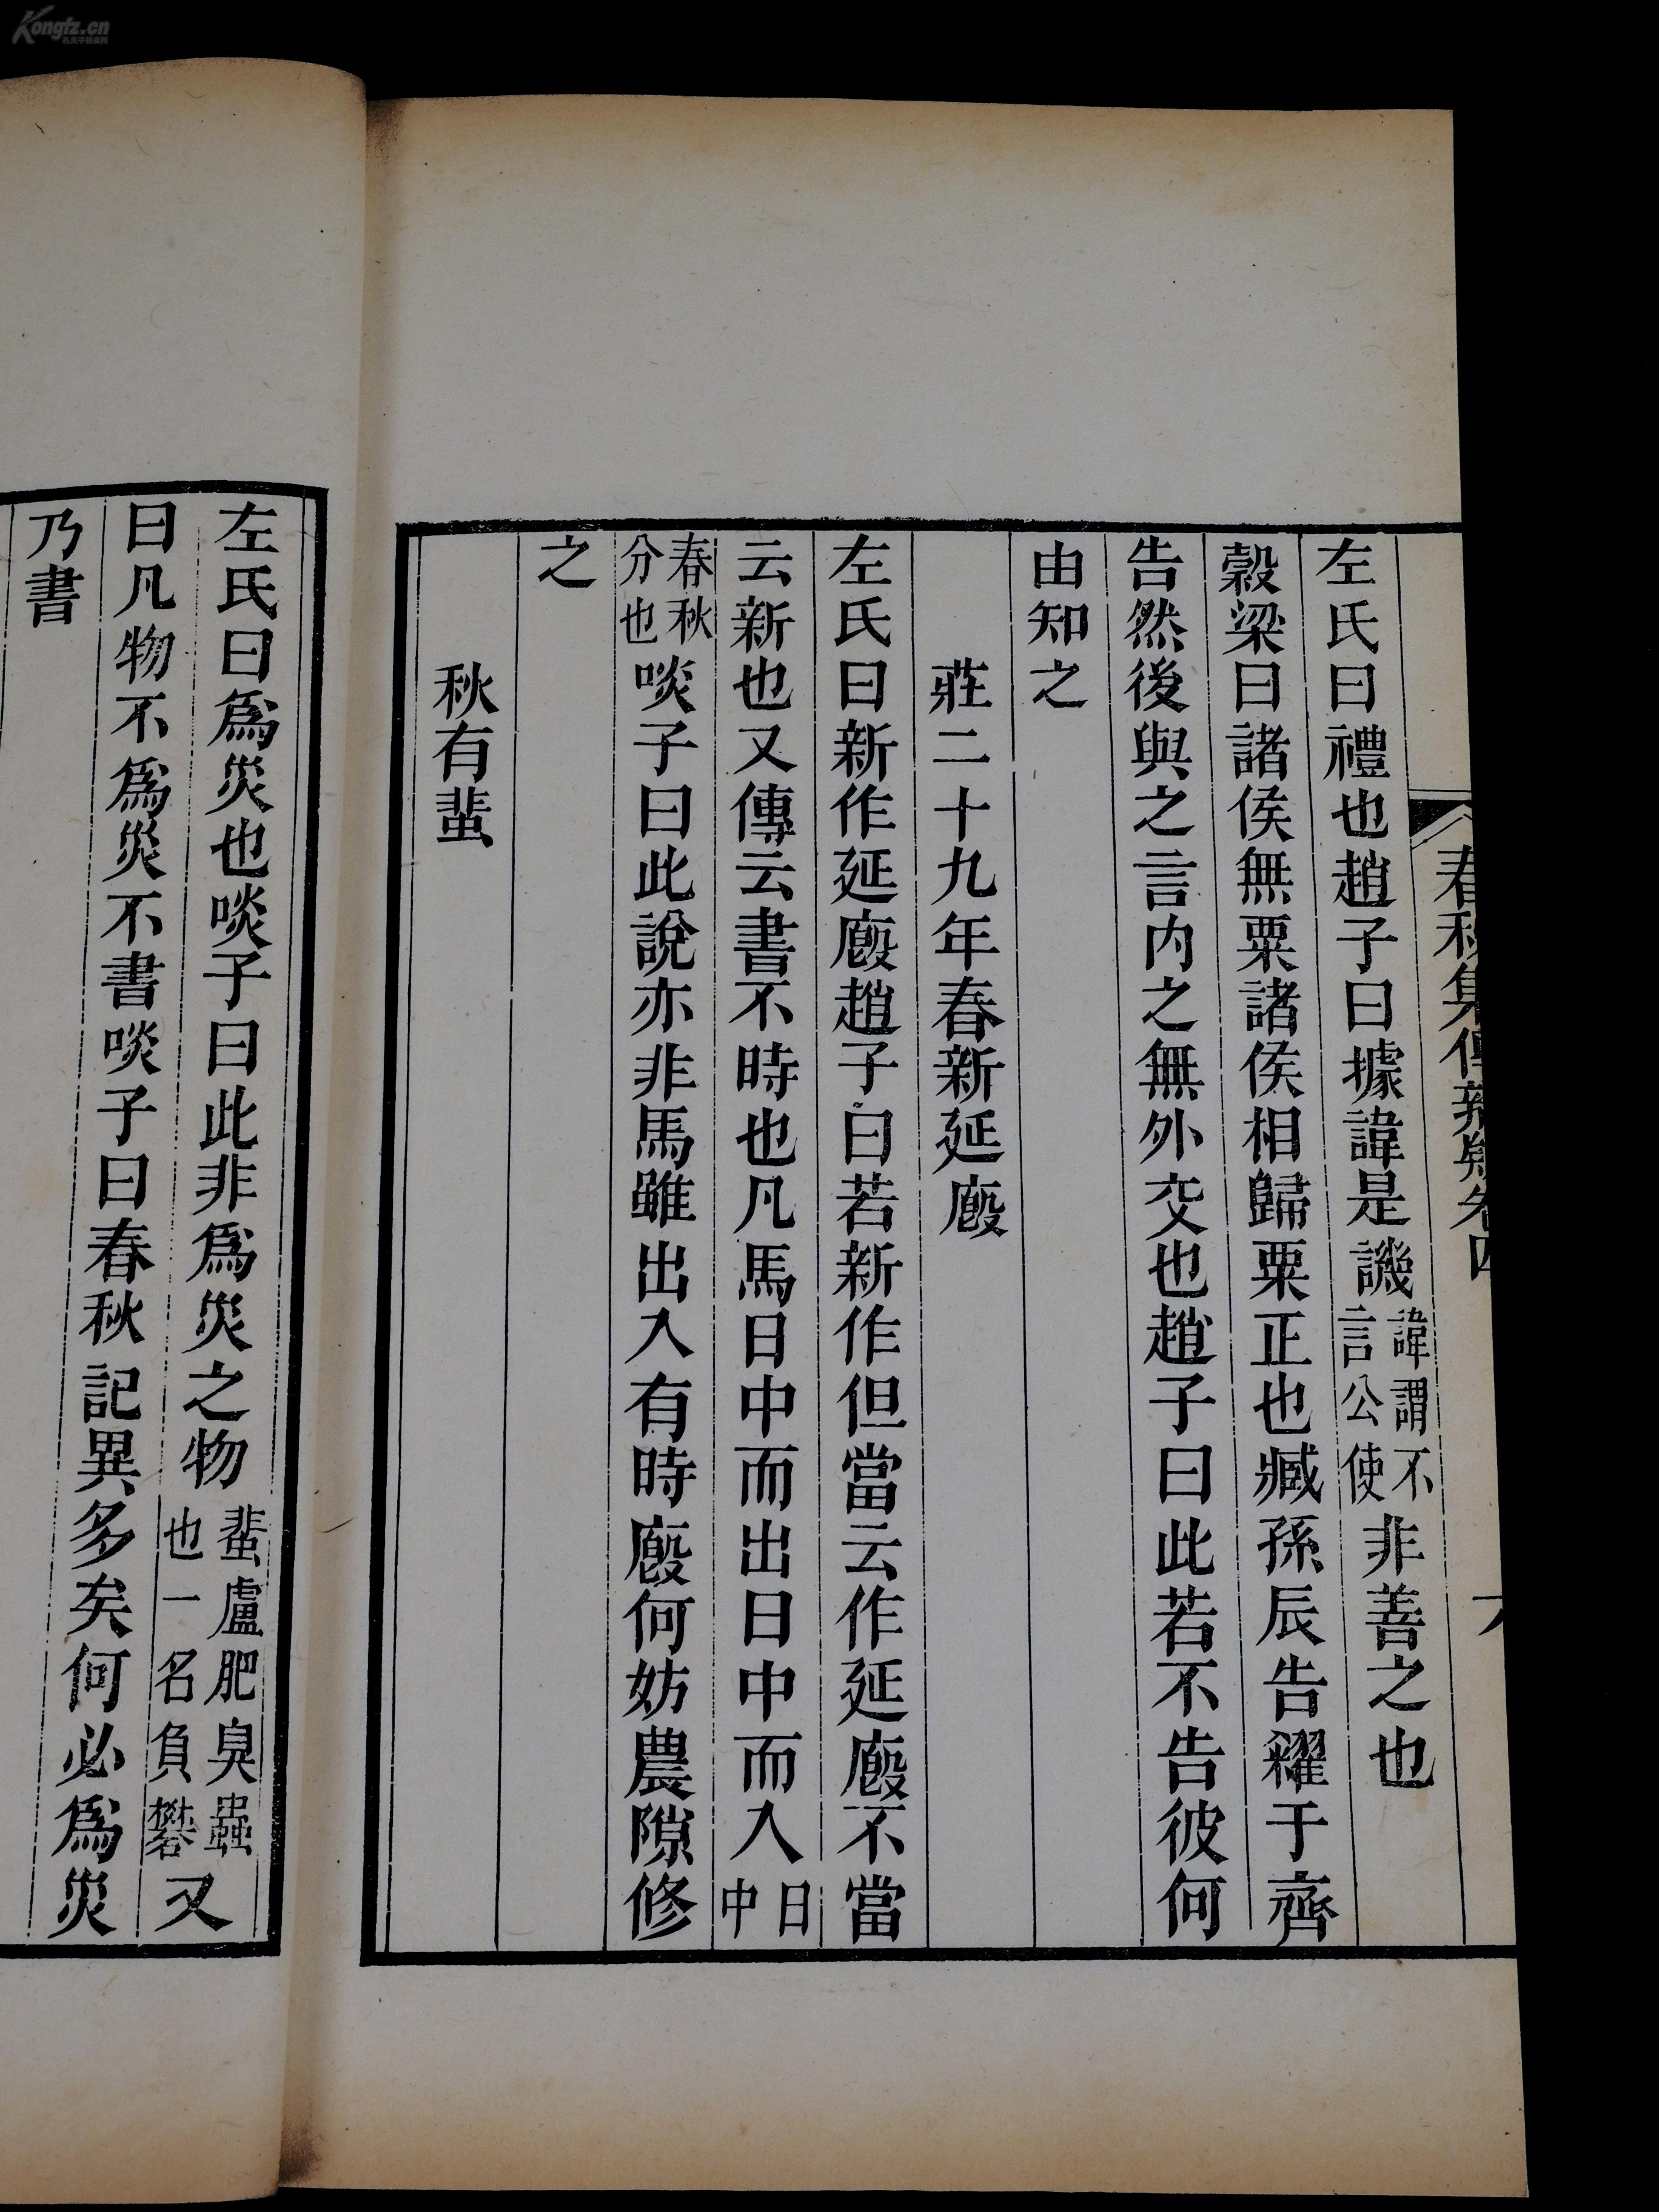 Kongfz.cn
孔夫子旧书网
春秋集傳辨疑卷四
左氏曰禮也趙子曰據諱是譏諱謂不言公使非善之也
穀梁曰諸侯無粟諸侯相歸粟正也臧孫辰告糴于齊
告然後與之言内之無外交也趙子曰此若不告彼何
由知之
莊二十九年春新延廏
左氏曰新作延廏趙子曰若新作但當云作延廏不當
云新也又傳云書不時也凡馬日中而出日中而入日中
春秋分也啖子曰此說亦非馬雖出入有時廏何妨農隙修
之
秋有蜚
左氏曰爲災也啖子曰此非爲災之物蜚盧肥臭蟲也一名負礬又
曰凡物不爲災不書啖子曰春秋記異多矣何必爲災
乃書